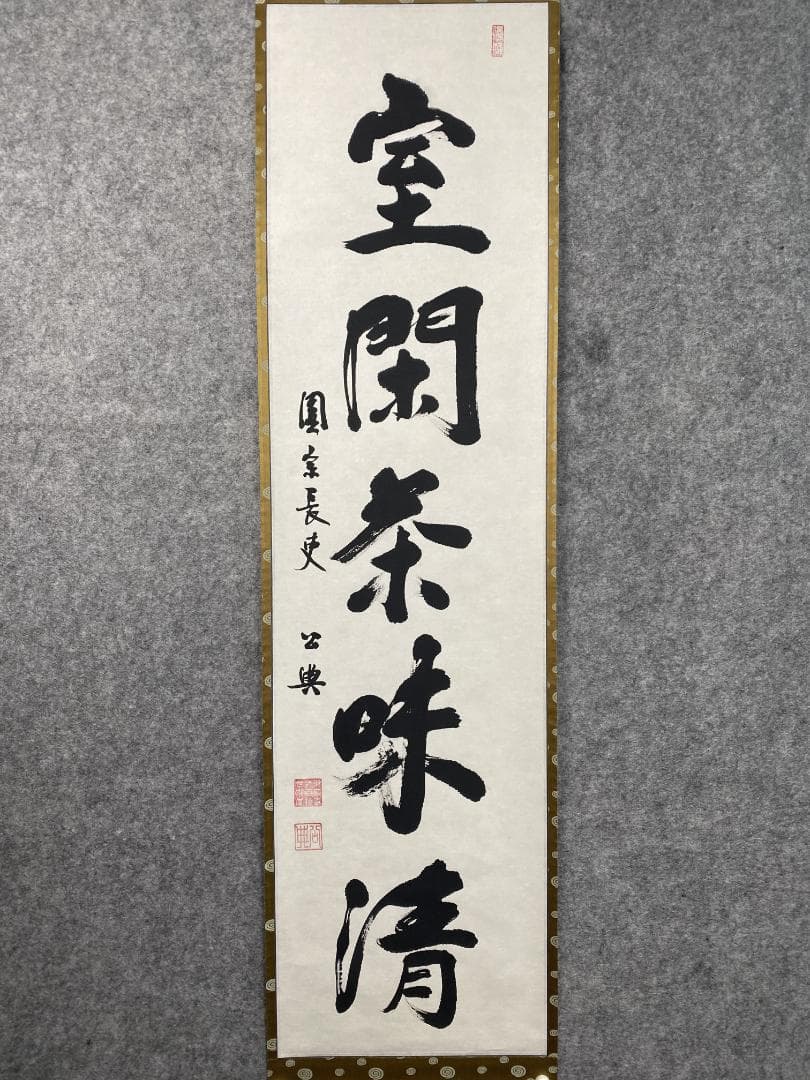 室閑茶味清
圓宗長吏 公典